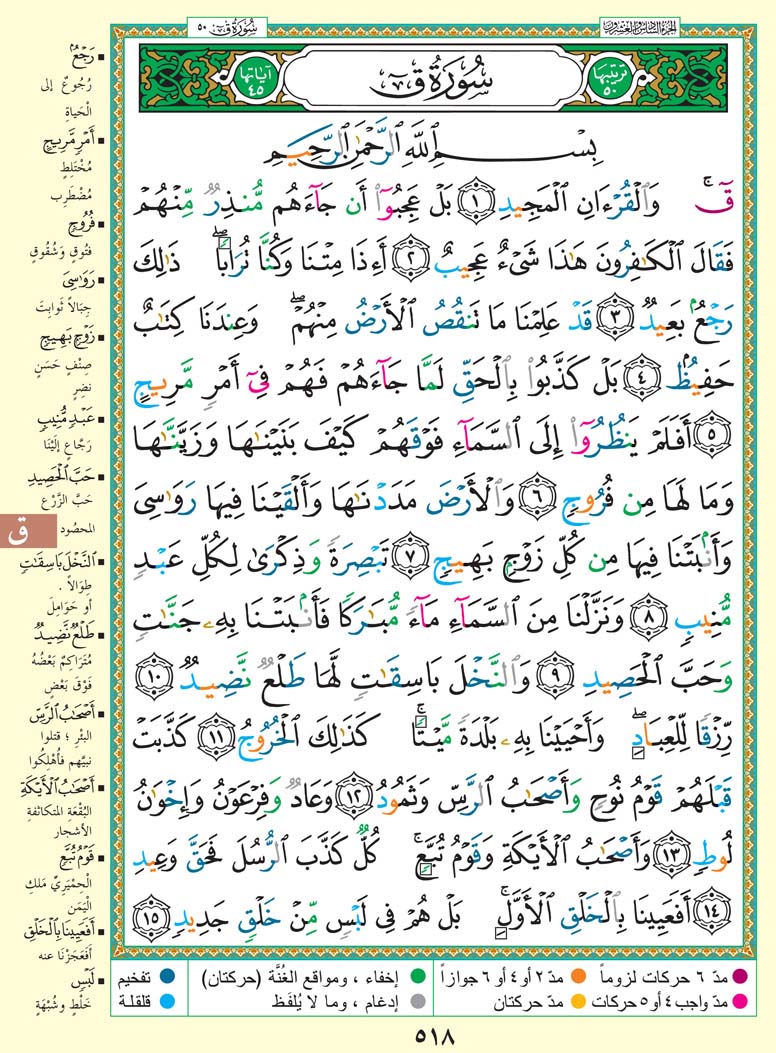 الجزء السادس والعشرون
سُورَةُ قٓ ٥٠
ترتيبها ٥٠
سُورَةُ قٓ
آياتها ٤٥
بِسْمِ ٱللَّهِ ٱلرَّحْمَٰنِ ٱلرَّحِيمِ
قٓ ۚ وَٱلْقُرْءَانِ ٱلْمَجِيدِ ١ بَلْ عَجِبُوٓا۟ أَن جَآءَهُم مُّنذِرٌ مِّنْهُمْ
فَقَالَ ٱلْكَٰفِرُونَ هَٰذَا شَىْءٌ عَجِيبٌ ٢ أَءِذَا مِتْنَا وَكُنَّا تُرَابًا ۖ ذَٰلِكَ
رَجْعٌۢ بَعِيدٌ ٣ قَدْ عَلِمْنَا مَا تَنقُصُ ٱلْأَرْضُ مِنْهُمْ ۖ وَعِندَنَا كِتَٰبٌ
حَفِيظٌۢ ٤ بَلْ كَذَّبُوا۟ بِٱلْحَقِّ لَمَّا جَآءَهُمْ فَهُمْ فِىٓ أَمْرٍ مَّرِيجٍ
٥ أَفَلَمْ يَنظُرُوٓا۟ إِلَى ٱلسَّمَآءِ فَوْقَهُمْ كَيْفَ بَنَيْنَٰهَا وَزَيَّنَّٰهَا
وَمَا لَهَا مِن فُرُوجٍ ٦ وَٱلْأَرْضَ مَدَدْنَٰهَا وَأَلْقَيْنَا فِيهَا رَوَٰسِىَ
وَأَنۢبَتْنَا فِيهَا مِن كُلِّ زَوْجٍۭ بَهِيجٍ ٧ تَبْصِرَةً وَذِكْرَىٰ لِكُلِّ عَبْدٍ
مُّنِيبٍ ٨ وَنَزَّلْنَا مِنَ ٱلسَّمَآءِ مَآءً مُّبَٰرَكًا فَأَنۢبَتْنَا بِهِۦ جَنَّٰتٍ
وَحَبَّ ٱلْحَصِيدِ ٩ وَٱلنَّخْلَ بَاسِقَٰتٍ لَّهَا طَلْعٌ نَّضِيدٌ ١٠
رِّزْقًا لِّلْعِبَادِ ۖ وَأَحْيَيْنَا بِهِۦ بَلْدَةً مَّيْتًا ۚ كَذَٰلِكَ ٱلْخُرُوجُ ١١ كَذَّبَتْ
قَبْلَهُمْ قَوْمُ نُوحٍ وَأَصْحَٰبُ ٱلرَّسِّ وَثَمُودُ ١٢ وَعَادٌ وَفِرْعَوْنُ وَإِخْوَٰنُ
لُوطٍ ١٣ وَأَصْحَٰبُ ٱلْأَيْكَةِ وَقَوْمُ تُبَّعٍ ۚ كُلٌّ كَذَّبَ ٱلرُّسُلَ فَحَقَّ وَعِيدِ
١٤ أَفَعَيِينَا بِٱلْخَلْقِ ٱلْأَوَّلِ ۚ بَلْ هُمْ فِى لَبْسٍ مِّنْ خَلْقٍ جَدِيدٍ ١٥
رَجْعٌ
رُجُوعٌ إلى
الْحَياةِ
أَمْرٍ مَّرِيجٍ
مُخْتَلِطٍ
مُضْطَرِب
فُرُوجٍ
فتُوقٍ وَشُقُوقٍ
رَوَٰسِىَ
جِبَالاً ثَوابتَ
زَوْجٍ بَهِيجٍ
صِنْفٍ حَسَنٍ
نضِرٍ
عَبْدٍ مُّنِيبٍ
رَجَّاعٍ إلَيْنَا
حَبَّ ٱلْحَصِيدِ
حَبَّ الزَّرْعِ
المحصُود
ق
ٱلنَّخْلَ بَاسِقَٰتٍ
طِوَالاً .
أو حَوَامِلَ
طَلْعٌ نَّضِيدٌ
مُتَرَاكمٌ بَعْضُهُ
فَوْقَ بَعْضٍ
أَصْحَٰبُ ٱلرَّسِّ
البئرِ ؛ قتلوا
نبيَّهم فأُهلِكوا
أَصْحَٰبُ ٱلْأَيْكَةِ
البُقْعَةِ المتكاثفةِ
الأشجار
قَوْمُ تُبَّعٍ
الْحِمْيَرِيِّ مَلكِ
الْيَمَن
أَفَعَيِينَا بِٱلْخَلْقِ
أفَعَجَزْنَا عنه
لَبْسٍ
خَلْطٍ وشُبْهَةٍ
مدّ ٦ حركات لزوماً مدّ ٢ أو ٤ أو ٦ جوازاً إخفاء ، ومواقع الغُنَّة (حركتان) تفخيم
مدّ واجب ٤ أو ٥ حركات مدّ حركتان إدغام ، وما لا يُلفَظ قلقلة
٥١٨